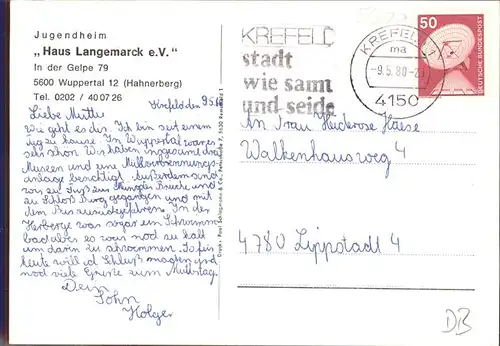 Jugendheim
„Haus Langemarck e.V."
In der Gelpe 79
5600 Wuppertal 12 (Hahnerberg)
Tel. 0202 / 40 07 26
Krefeld den 9.5.80
Liebe Mutti
Wie geht es dir. Ich bin seit einem
Tag zu hause. In Wuppertal war es
sehr schön. Wir haben insgesamt drei
Museen und eine Müllverbrennungs-
anlage besichtigt. Außerdem sind
wir zu Fuß zur Müngster Brücke und
zu Schloß Burg gegangen und mit
dem Bus zurückgefahren. In der
Herberge war sogar ein Schwimm
bad aber es war noch zu kalt
um darin zu schwimmen. So für
heute will ich Schluß machen und
noch viele Grüße zum Muttertag.
Dein
Sohn
Holger
KREFELD
stadt
wie samt
und seide
KREFELD 1
ma
-9.5.80-20
4150
50
DEUTSCHE BUNDESPOST
An Frau Heiderose Haese
Walkenhausweg 4
4780 Lippstadt 4
DB